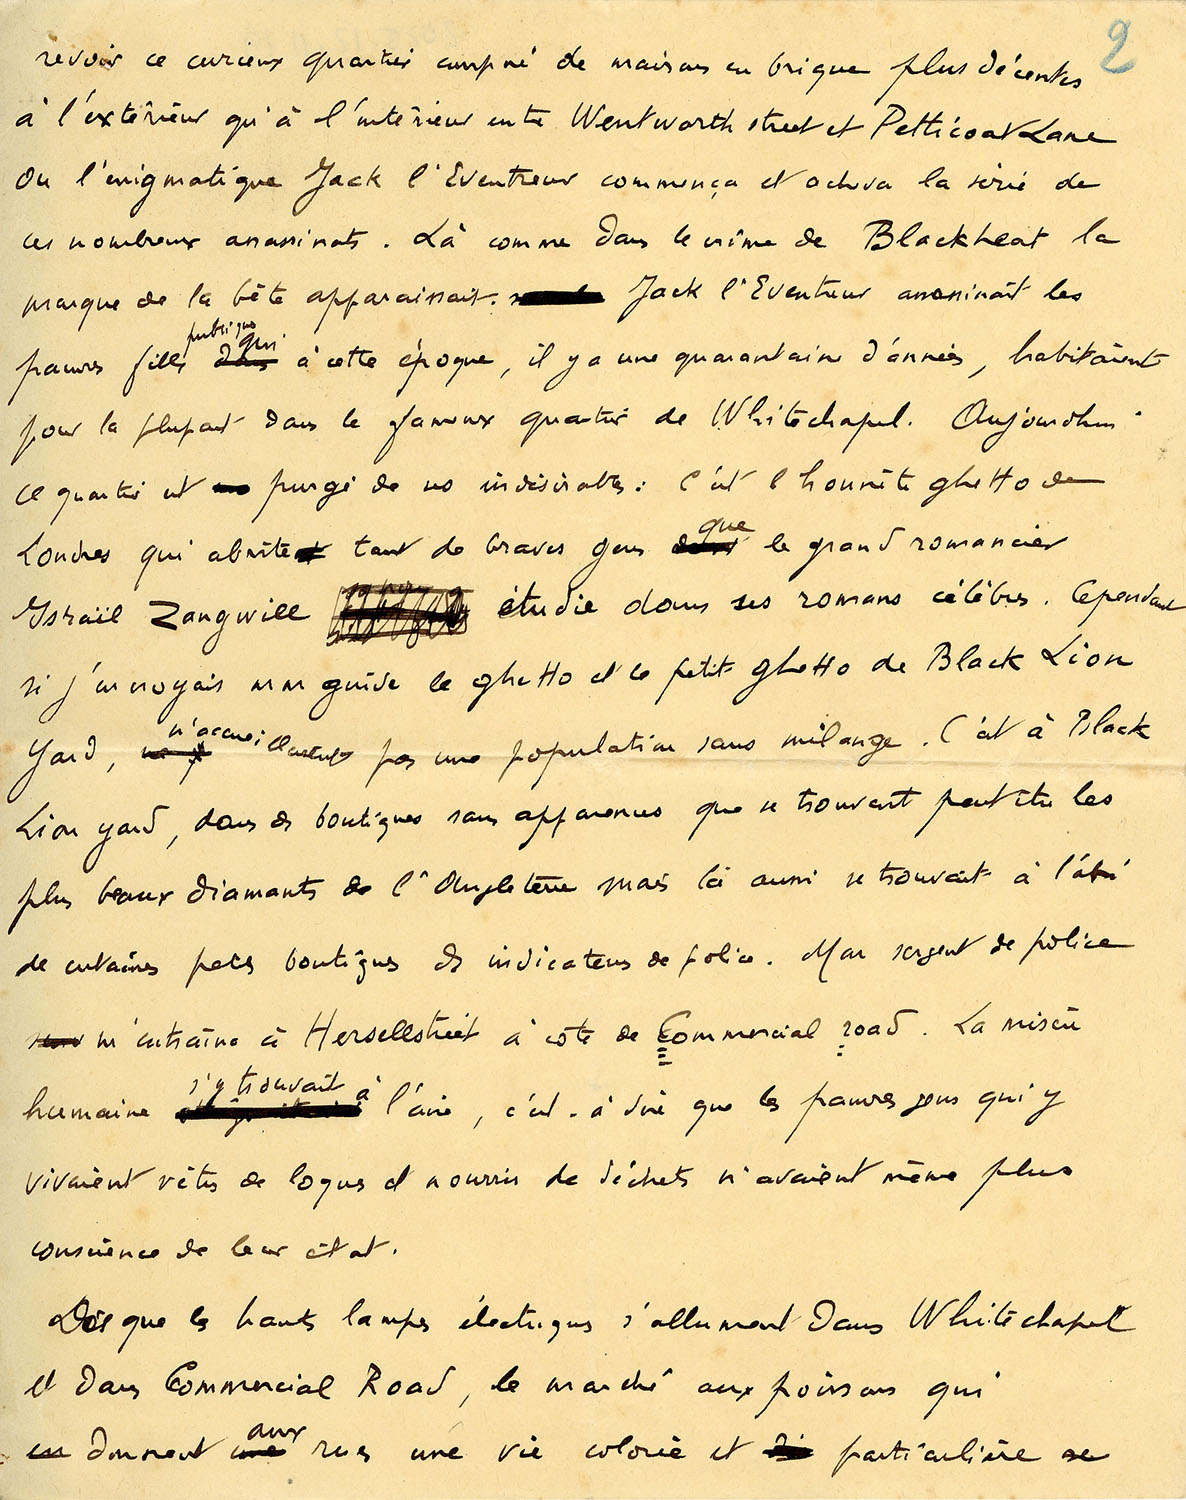 2
revoir ce curieux quartier composé de maisons en brique plus décentes
à l'extérieur qu'à l'intérieur entre Wentworth street et Petticoat Lane
où l'enigmatique Jack l'Eventreur commença et acheva la série de
ces nombreux assassinats. Là comme dans le crime de Blackheat la
marque de la bête apparaissait. Jack l'Eventreur assassinait les
pauvres filles publiques qui à cette époque, il y a une quarantaine d'années, habitaient
pour la plupart dans le fameux quartier de Whitechapel. Aujourdhui
ce quartier est purgé de ses indésirables: C'est l'honnête ghetto de
Londres qui abrite tant de braves gens que le grand romancier
Israël Zangwill étudie dans ses romans célèbres. Cependant
si j'en croyais mon guide le ghetto et ce petit ghetto de Black Lion
Yard, n'accueillent pas une population sans mélange. C'est à Black
Lion yard, dans des boutiques sans apparences que se trouvent peut être les
plus beaux diamants de l'Angleterre mais là aussi se trouvait à l'abri
de certaines petites boutiques des indicateurs de police. Mon sergent de police
m'entraîne à Hersellstreet à côté de Commercial road. La misère
humaine s'y trouvait à l'aise, c'est-à dire que les pauvres gens qui y
vivaient vêtus de loques et nourris de déchets n'avaient même plus
conscience de leur état.
Dès que les hautes lampes électriques s'allument dans Whitechapel
et dans Commercial Road, le marché aux poissons qui
donnent aux rues une vie colorée et particulière se